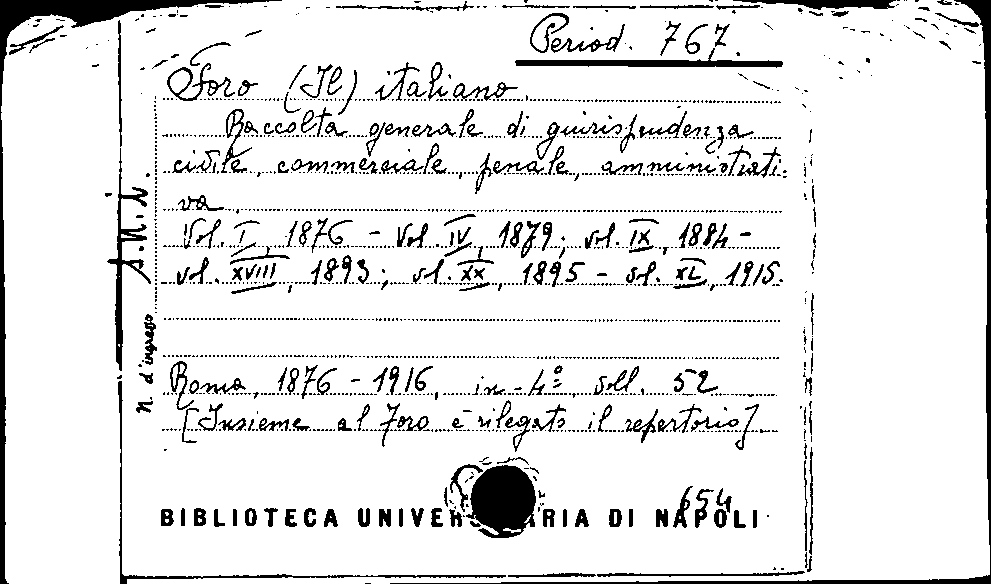 Period. 767.
Foro (Il) italiano.
Raccolta generale di giurisprudenza
civile, commerciale, penale, amministrati-
va.
Vol. I, 1876 - Vol. IV, 1879; vol. IX, 1884 -
vol. XVIII, 1893; vol. XX, 1895 - vol. XL, 1915.
Roma, 1876 - 1916, in - 4º, voll. 52
[Insieme al Foro è rilegato il repertorio].
N. d'ingresso S.N.i.
654
BIBLIOTECA UNIVER ARIA DI NAPOLI